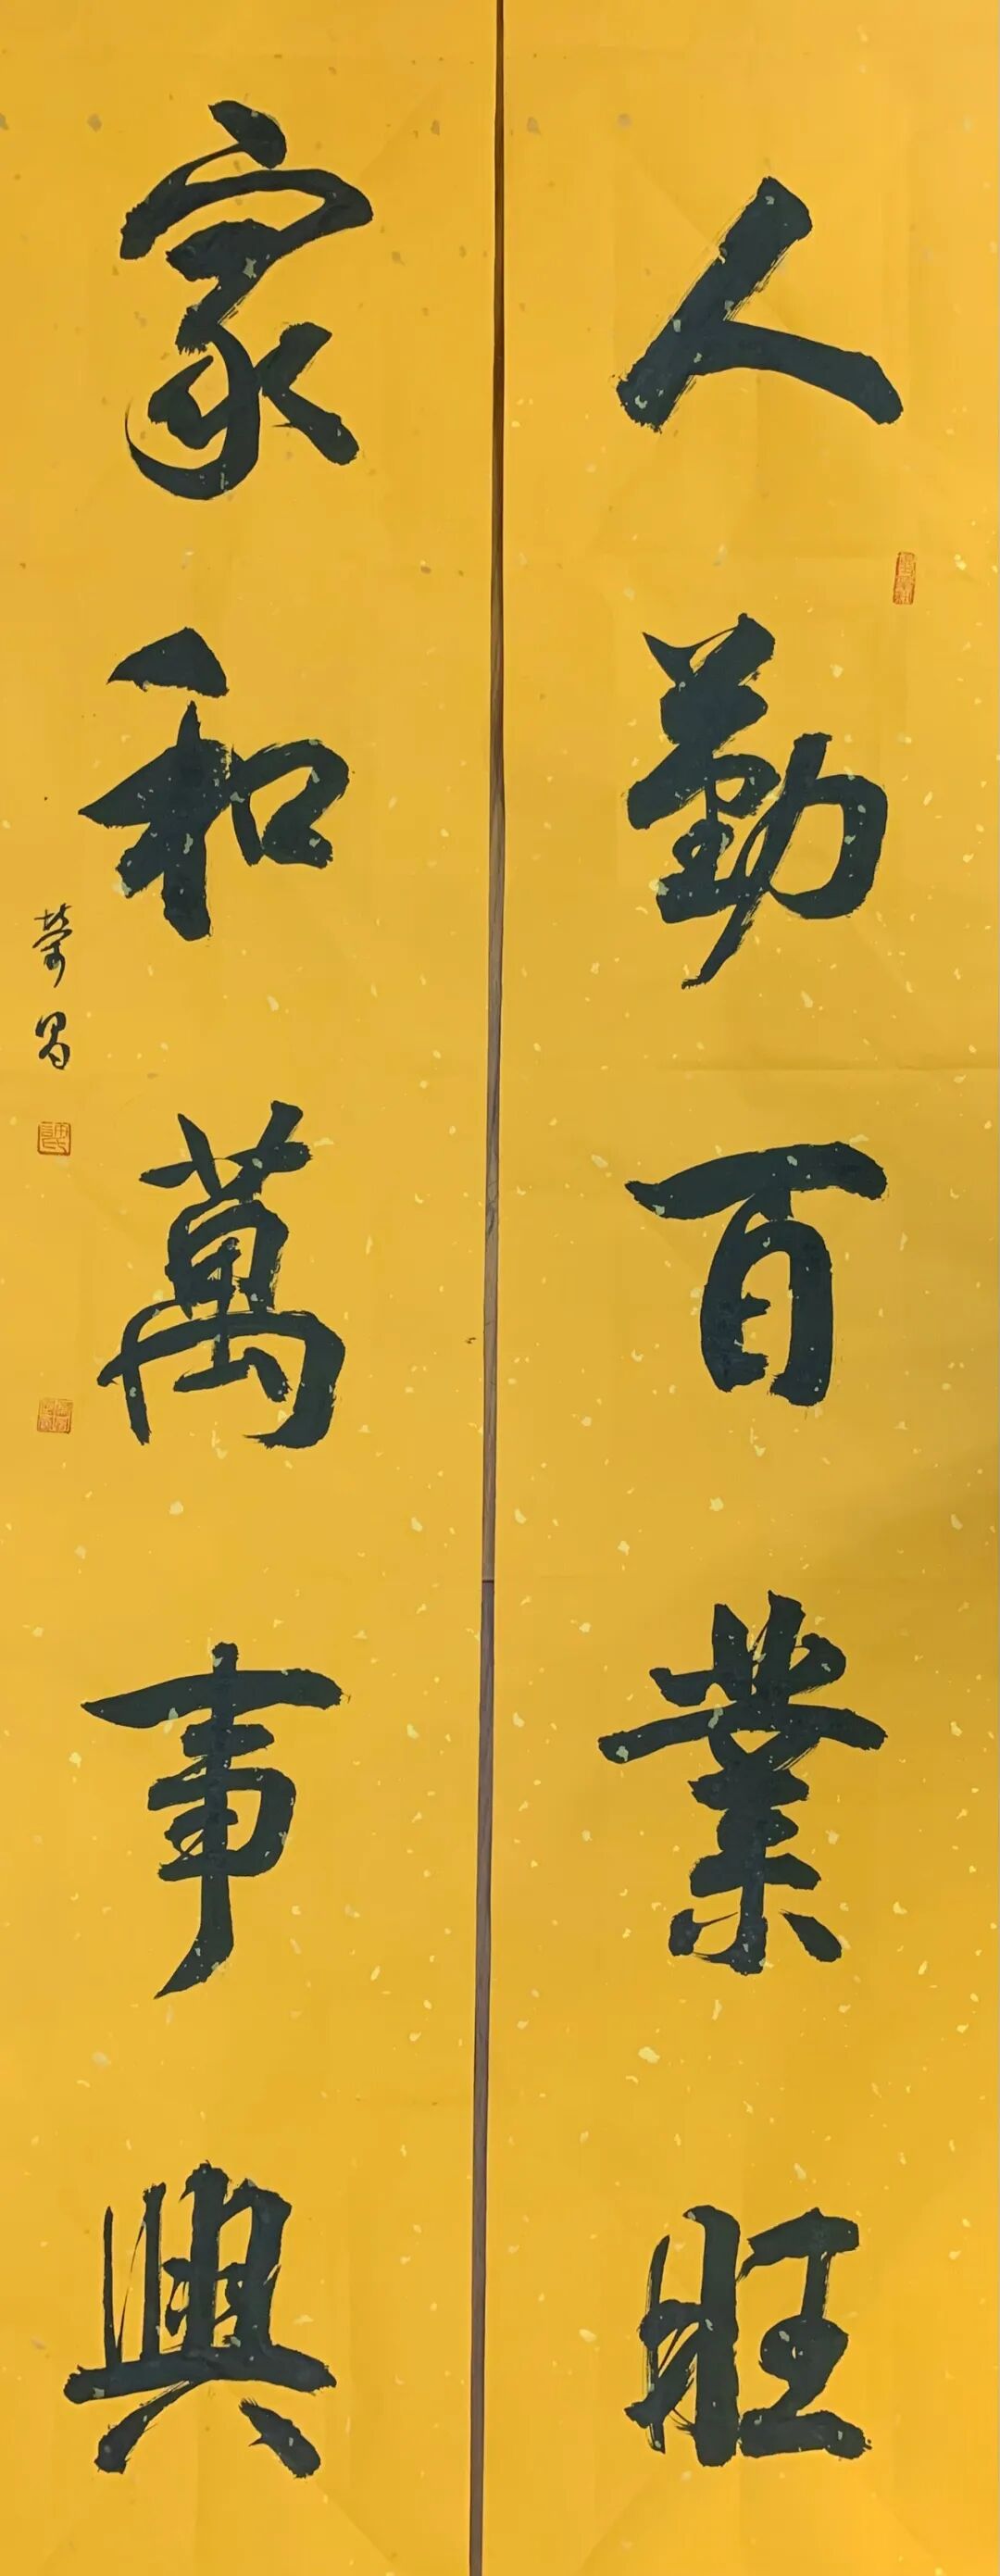 人勤百業旺
家和萬事興
榮昌